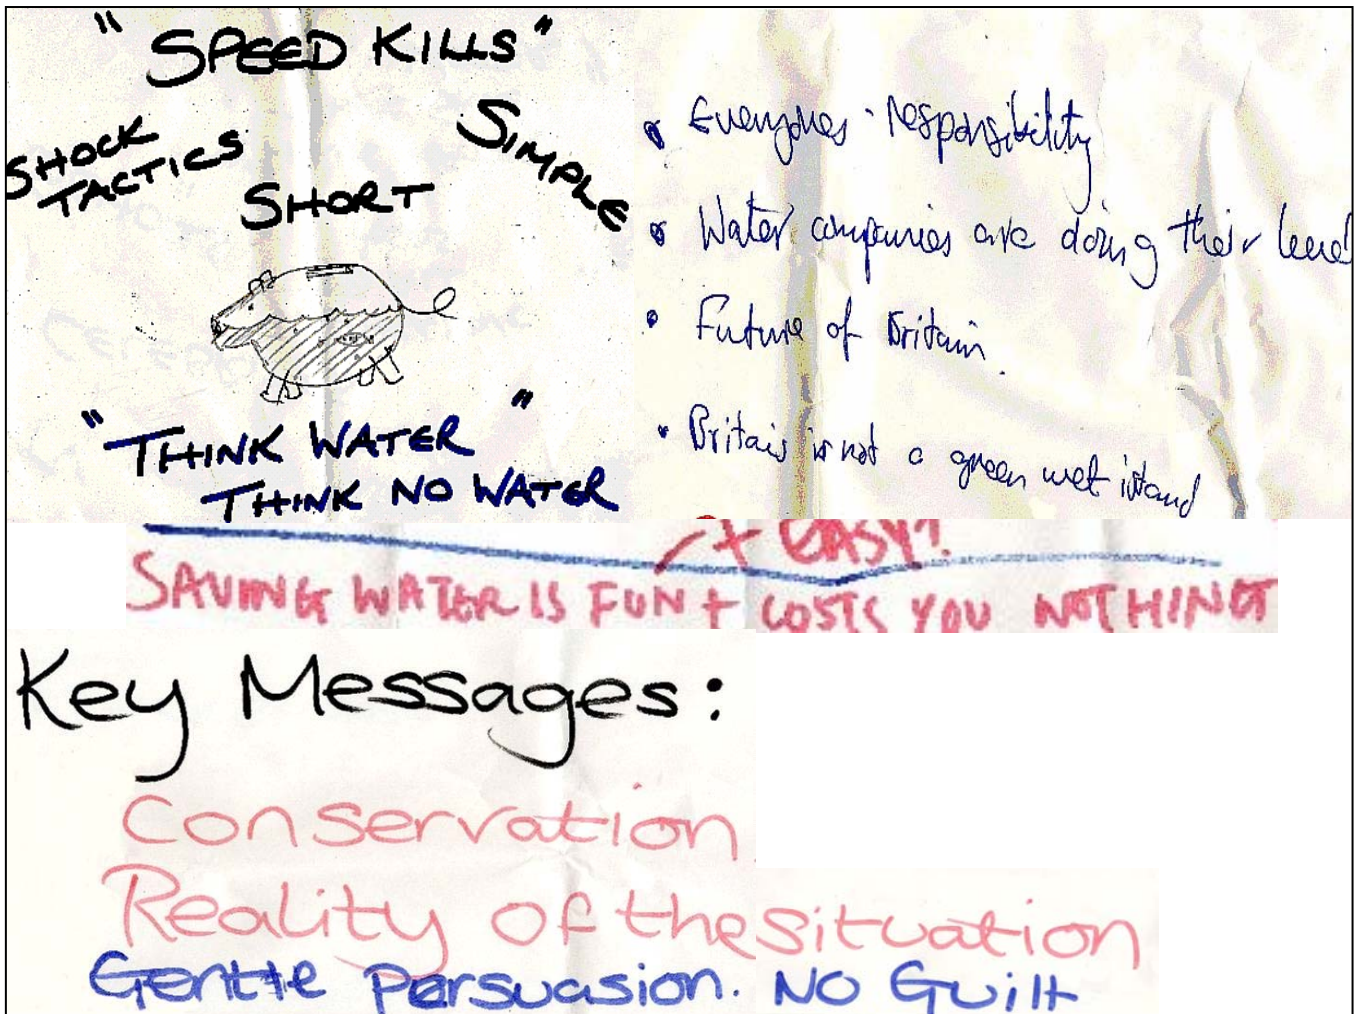 "SPEED KILLS"
SHOCK
TACTICS
SIMPLE
SHORT
"THINK WATER
THINK NO WATER"
Everyones responsibility
Water companies are doing their
Future of Britain.
Britain is not a green wet island
+ EASY?
SAVING WATER IS FUN + COSTS YOU NOTHING
Key Messages:
Conservation
Reality of the situation
Gentle Persuasion. No Guilt